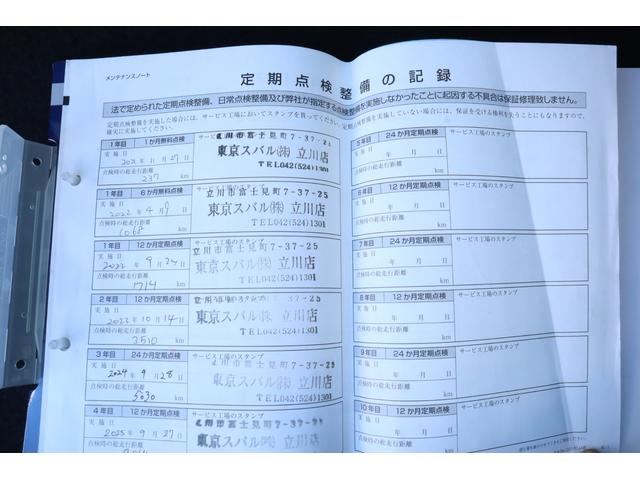 メンテナンスノート
定期点検整備の記録
法で定められた定期点検整備、日常点検整備及び弊社が指定する点検整備を実施しなかったことに起因する不具合は保証修理致しません。
定期点検整備を実施した場合には、サービス工場においてスタンプを貰ってください。定期点検整備を実施していない場合には、保証を受ける権利を失うことにもなりますので、
確実に実施してください。
1年目 1か月無料点検
実施日
2021年11月27日
点検時の総走行距離
237 km
立川市富士見町7-37-25
東京スバル㈱ 立川店
TEL042(524)1301
1年目 6か月無料点検
実施日
2022年4月9日
点検時の総走行距離
1068 km
立川市富士見町7-37-25
東京スバル㈱ 立川店
TEL042(524)1301
1年目 12か月定期点検
サービス工場のスタンプ
実施日
2022年9月24日
点検時の総走行距離
1714 km
立川市富士見町7-37-25
東京スバル㈱ 立川店
TEL042(524)1301
2年目 12か月定期点検
実施日
2023年10月14日
点検時の総走行距離
3510 km
東京スバル㈱ 立川店
TEL042(524)1301
3年目 24か月定期点検
サービス工場のスタンプ
実施日
2024年9月28日
点検時の総走行距離
5030 km
立川市富士見町7-37-25
東京スバル㈱ 立川店
TEL042(524)1301
4年目 12か月定期点検
サービス工場のスタンプ
実施日
2025年9月27日
立川市富士見町7-37-25
東京スバル㈱ 立川店
5年目 24か月定期点検
サービス工場のスタンプ
実施日
年 月 日
点検時の総走行距離
km
6年目 12か月定期点検
サービス工場のスタンプ
実施日
年 月 日
点検時の総走行距離
km
7年目 24か月定期点検
サービス工場のスタンプ
実施日
年 月 日
点検時の総走行距離
km
8年目 12か月定期点検
サービス工場のスタンプ
実施日
年 月 日
点検時の総走行距離
km
9年目 24か月定期点検
サービス工場のスタンプ
実施日
年 月 日
点検時の総走行距離
km
10年目 12か月定期点検
サービス工場のスタンプ
実施日
年 月 日
点検時の総走行距離
km